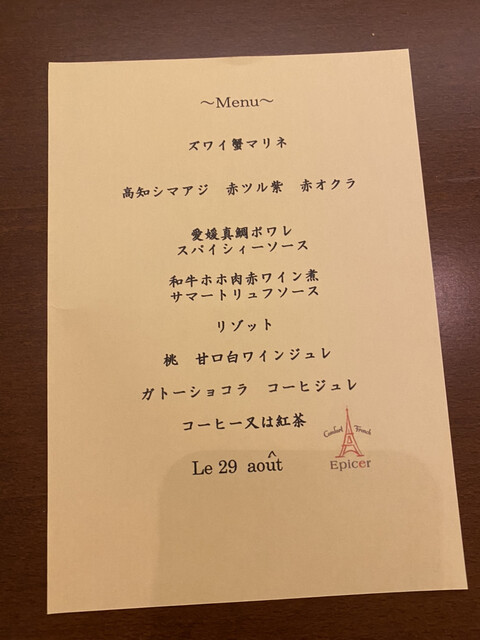 ～Menu～
ズワイ蟹マリネ
高知シマアジ　赤ツル紫　赤オクラ
愛媛真鯛ポワレ
スパイシィーソース
和牛ホホ肉赤ワイン煮
サマートリュフソース
リゾット
桃　甘口白ワインジュレ
ガトーショコラ　コーヒジュレ
コーヒー又は紅茶
Le 29 août
Comfort French
Epicer